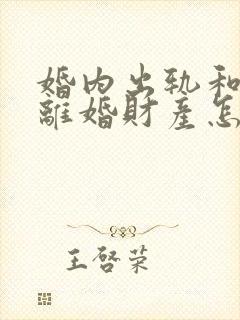 婚内出轨和
離婚財產怎
王啓荣